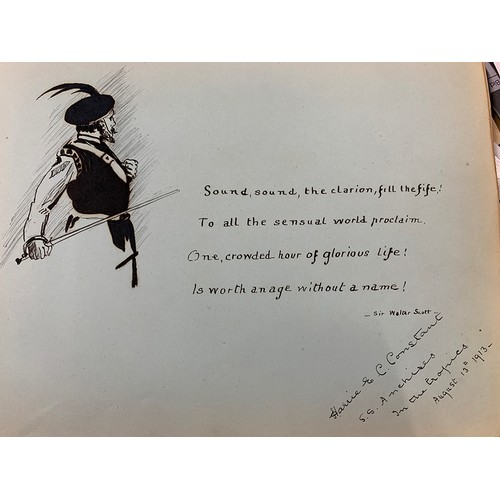 Sound, sound, the clarion, fill the fife,!
To all the sensual world proclaim.
One, crowded hour of glorious life!
Is worth an age without a name!
- Sir Walter Scott -
E C. Constant
S.S. Anchises
In the tropics
August 13th 1913-